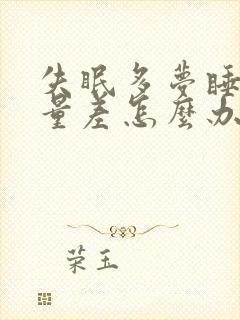 失眠多夢睡
量差怎麼办
荣玉